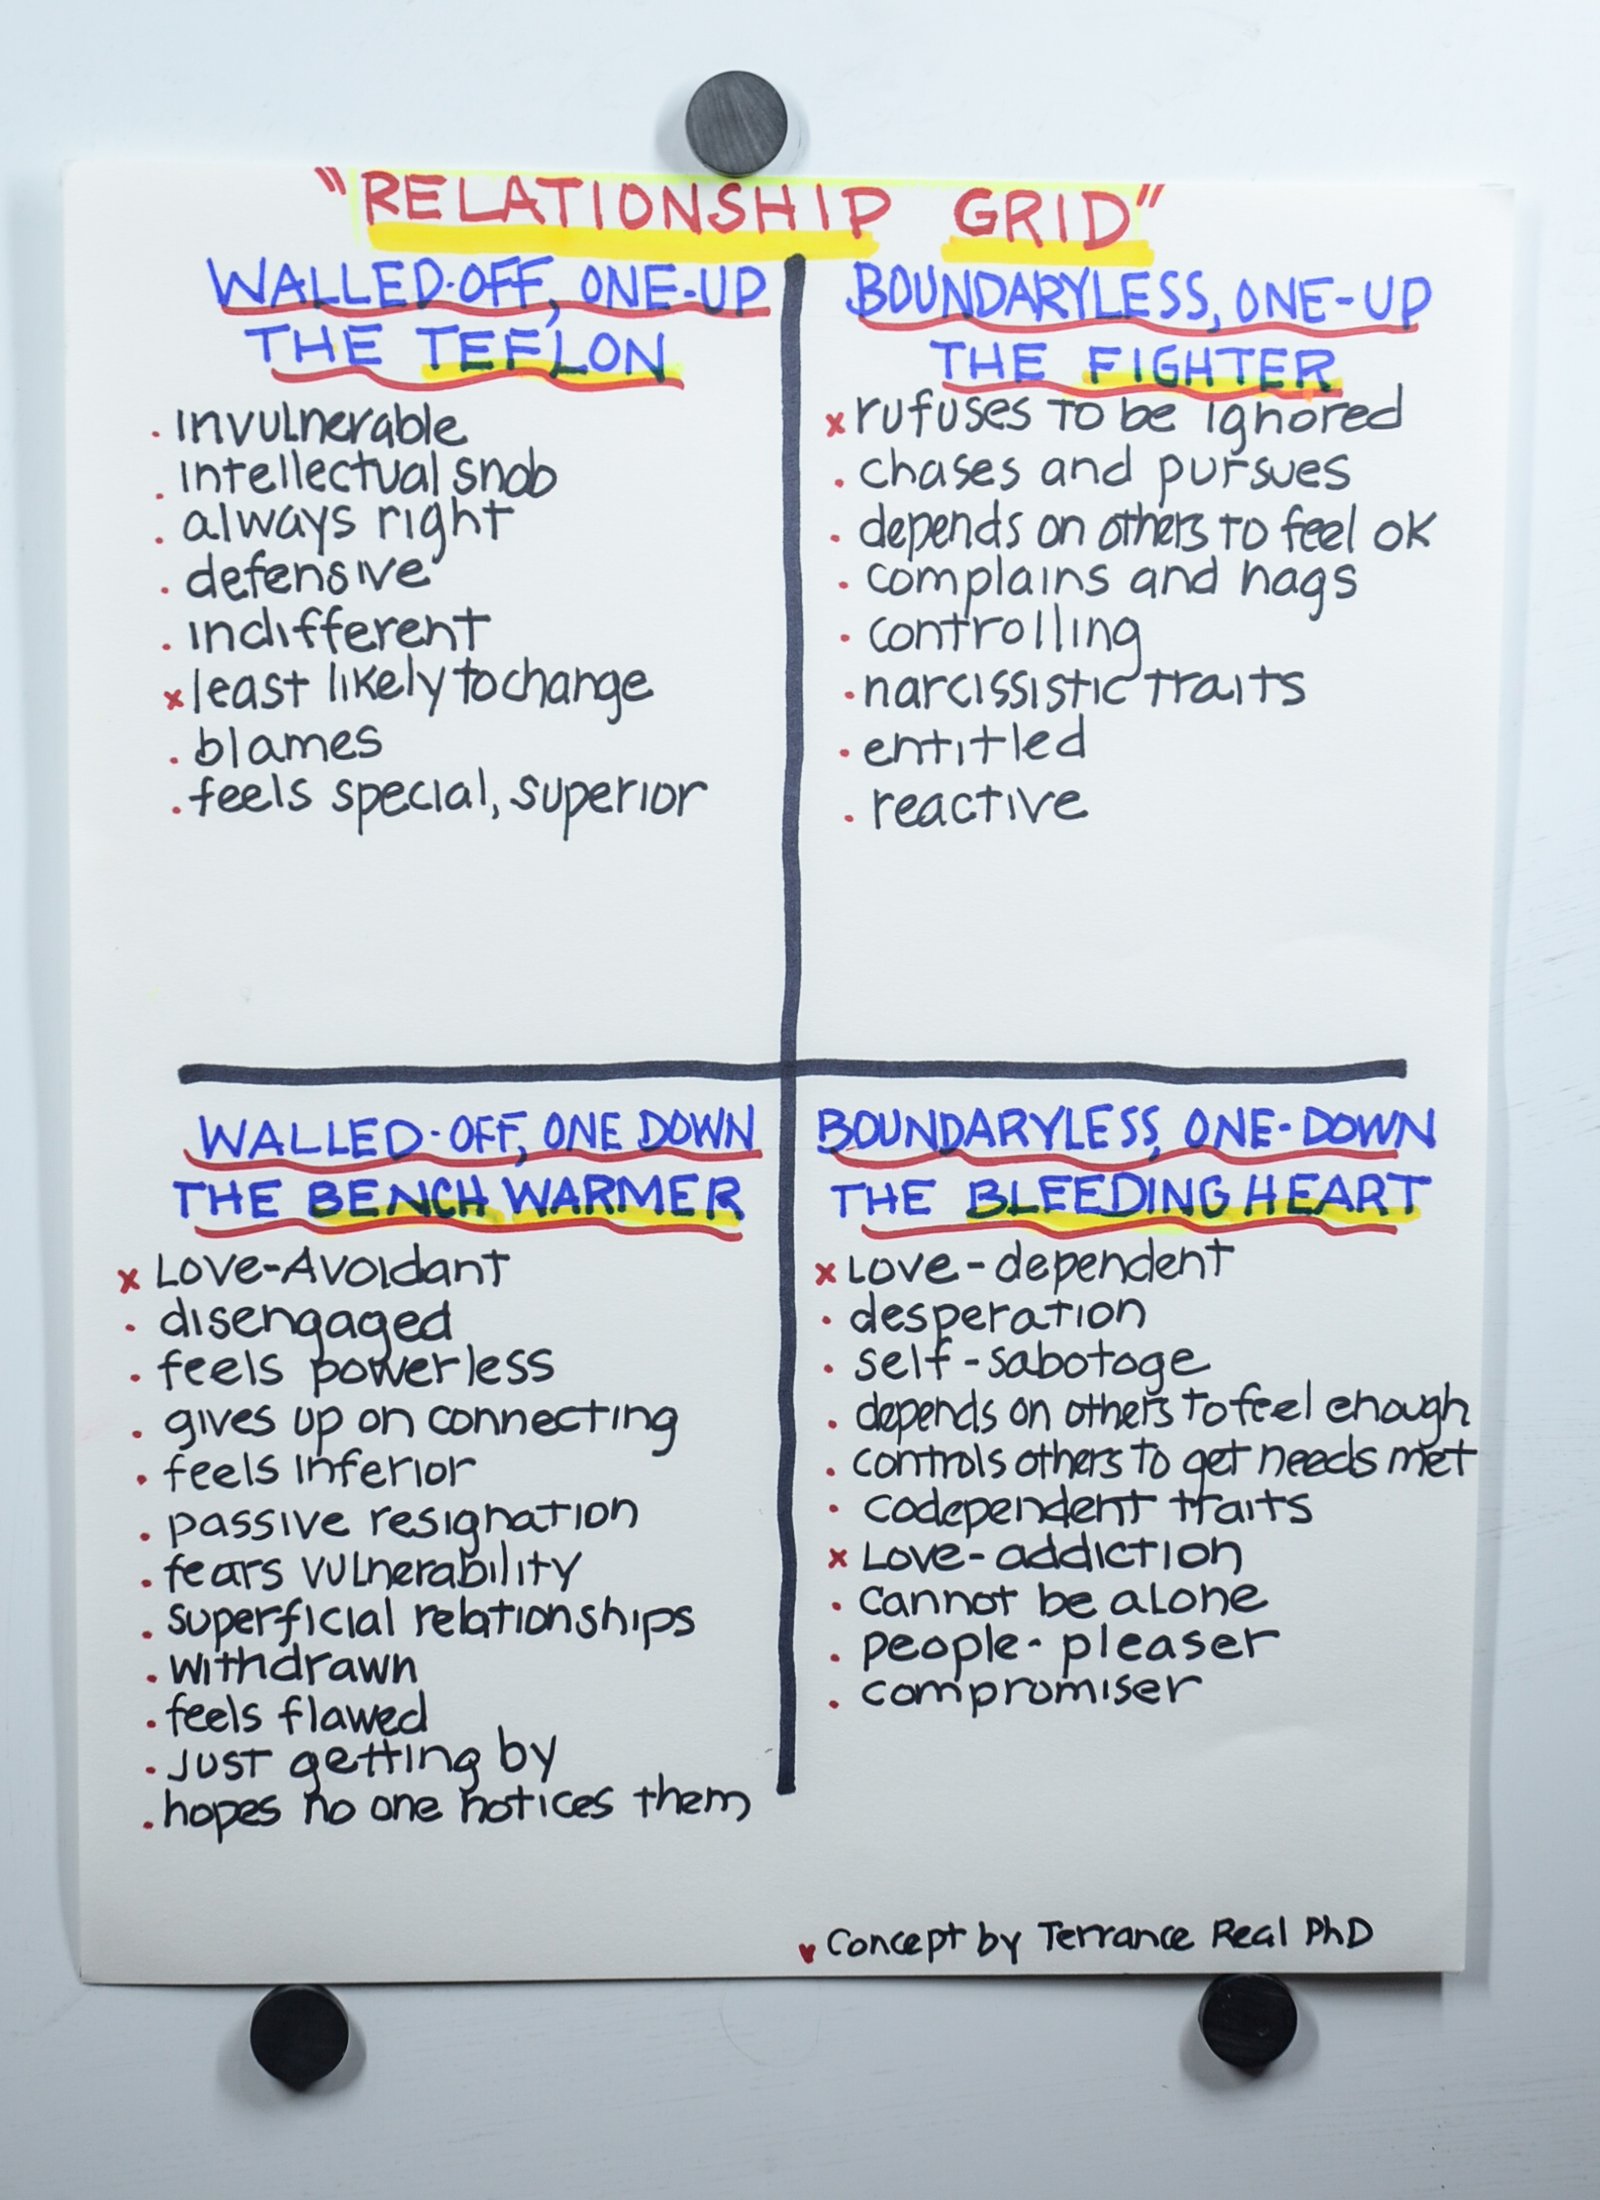 "RELATIONSHIP GRID"
WALLED-OFF, ONE-UP
THE TEFLON
. invulnerable
. intellectual snob
. always right
. defensive
. indifferent
x least likely to change
. blames
. feels special, superior
BOUNDARYLESS, ONE-UP
THE FIGHTER
x rufuses to be ignored
. chases and pursues
. depends on others to feel ok
. complains and nags
. controlling
. narcissistic traits
. entitled
. reactive
WALLED-OFF, ONE DOWN
THE BENCH WARMER
x Love-Avoidant
. disengaged
. feels powerless
. gives up on connecting
. feels inferior
. passive resignation
. fears vulnerability
. superficial relationships
. withdrawn
. feels flawed
. just getting by
. hopes no one notices them
BOUNDARYLESS, ONE-DOWN
THE BLEEDING HEART
x Love-dependent
. desperation
. self-sabotoge
. depends on others to feel enough
. controls others to get needs met
. codependent traits
x Love-addiction
. cannot be alone
. people-pleaser
. compromiser
♥ Concept by Terrance Real PhD